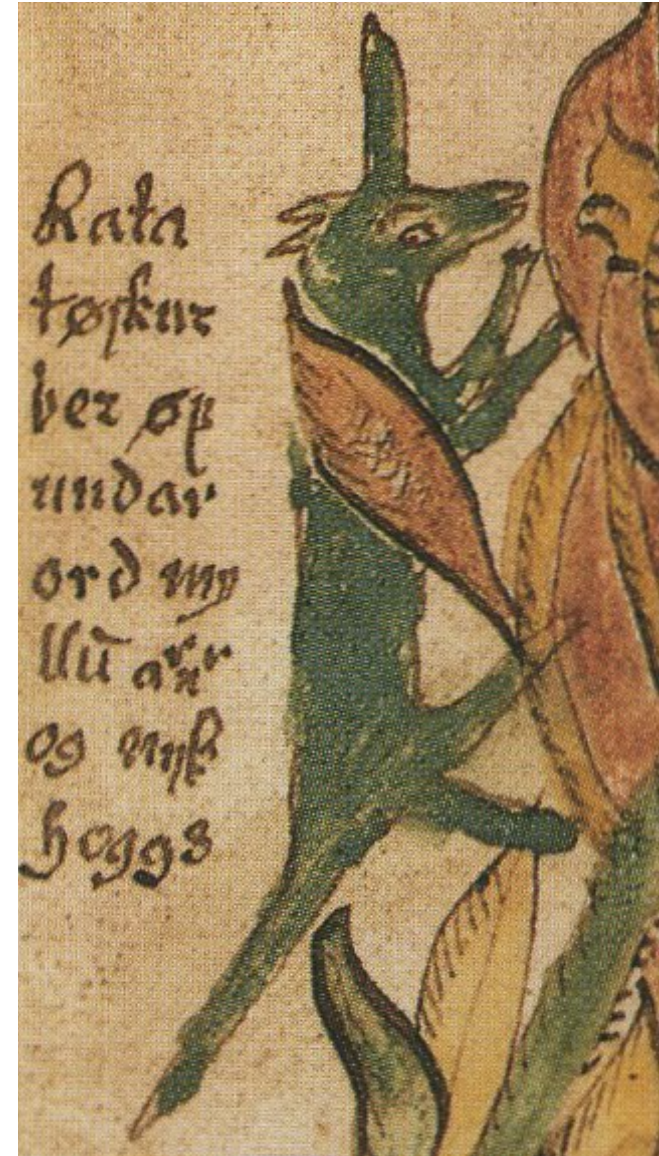 Rata
tøskur
ber øf
undar
ord my
llū
og nijk
hoggs